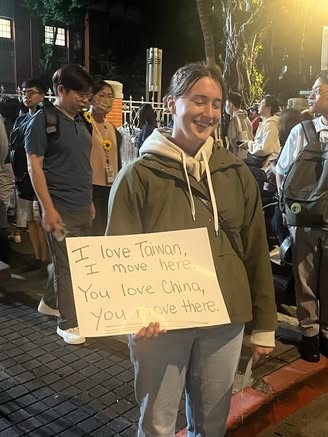 I love Taiwan,
I move here
You love China,
You move there.